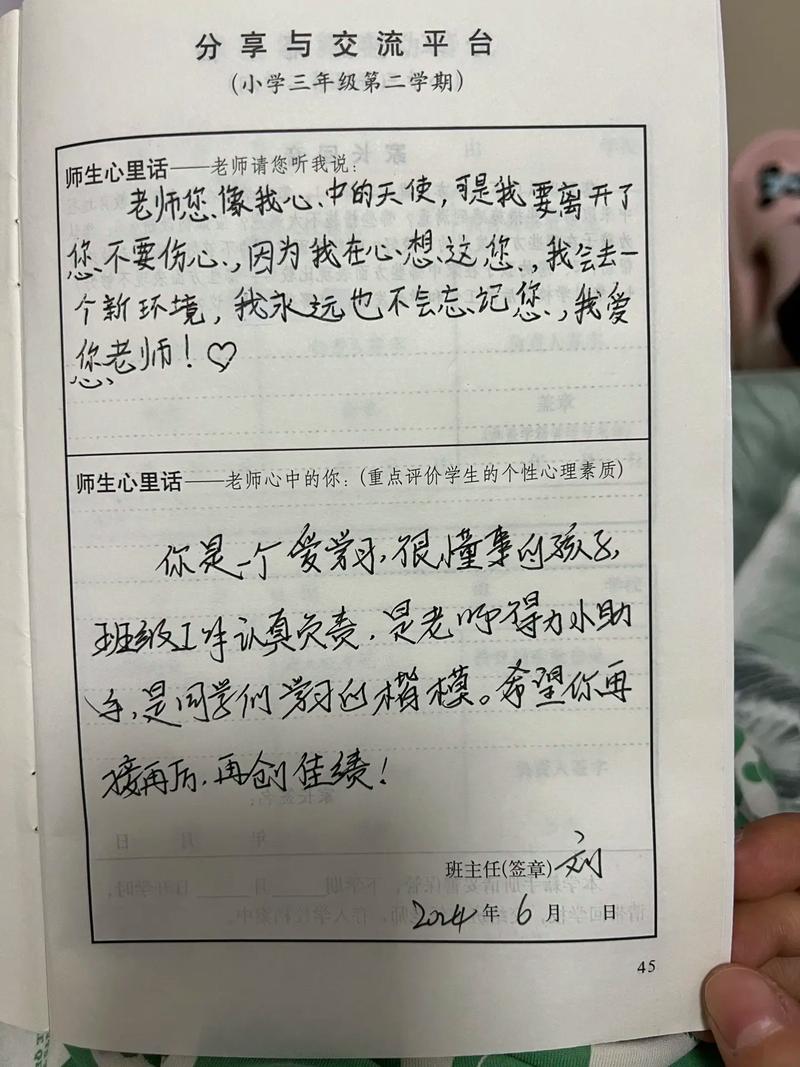 分享与交流平台
(小学三年级第二学期)
师生心里话——老师请您听我说:
老师您像我心中的天使,可是我要离开了
您不要伤心,因为我在心想这您,我会去一
个新环境,我永远也不会忘记您,我爱
您老师!♡
师生心里话——老师心中的你:(重点评价学生的个性心理素质)
你是一个爱学习,很懂事的孩子,
班级工作认真负责,是老师得力小助
手,是同学们学习的楷模。希望你再
接再厉,再创佳绩!
班主任(签章)刘
2024年6月 日
45